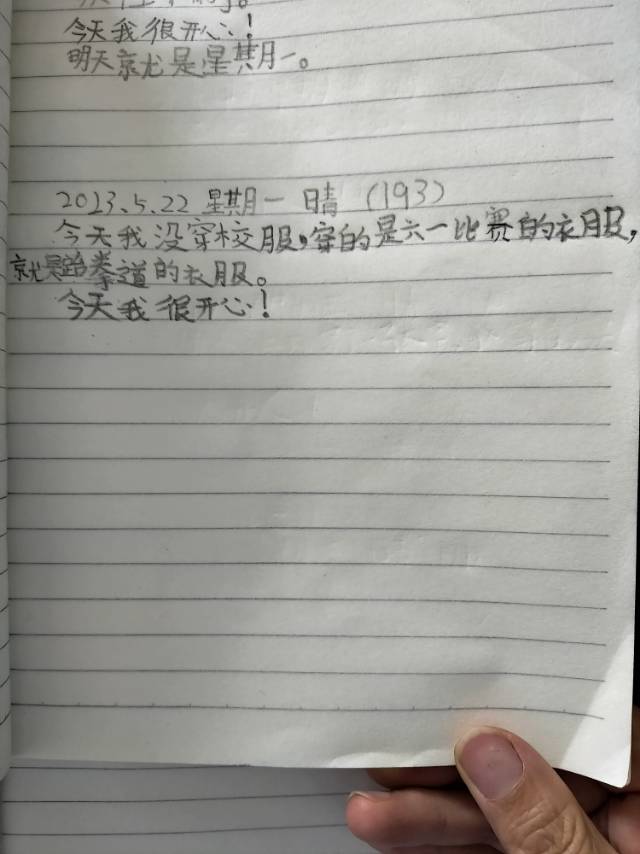 今天我很开心!
明天就是星其月一。
2023.5.22 星期一 晴 (193)
今天我没穿校服,穿的是六一比赛的衣服,
就是跆拳道的衣服。
今天我很开心!